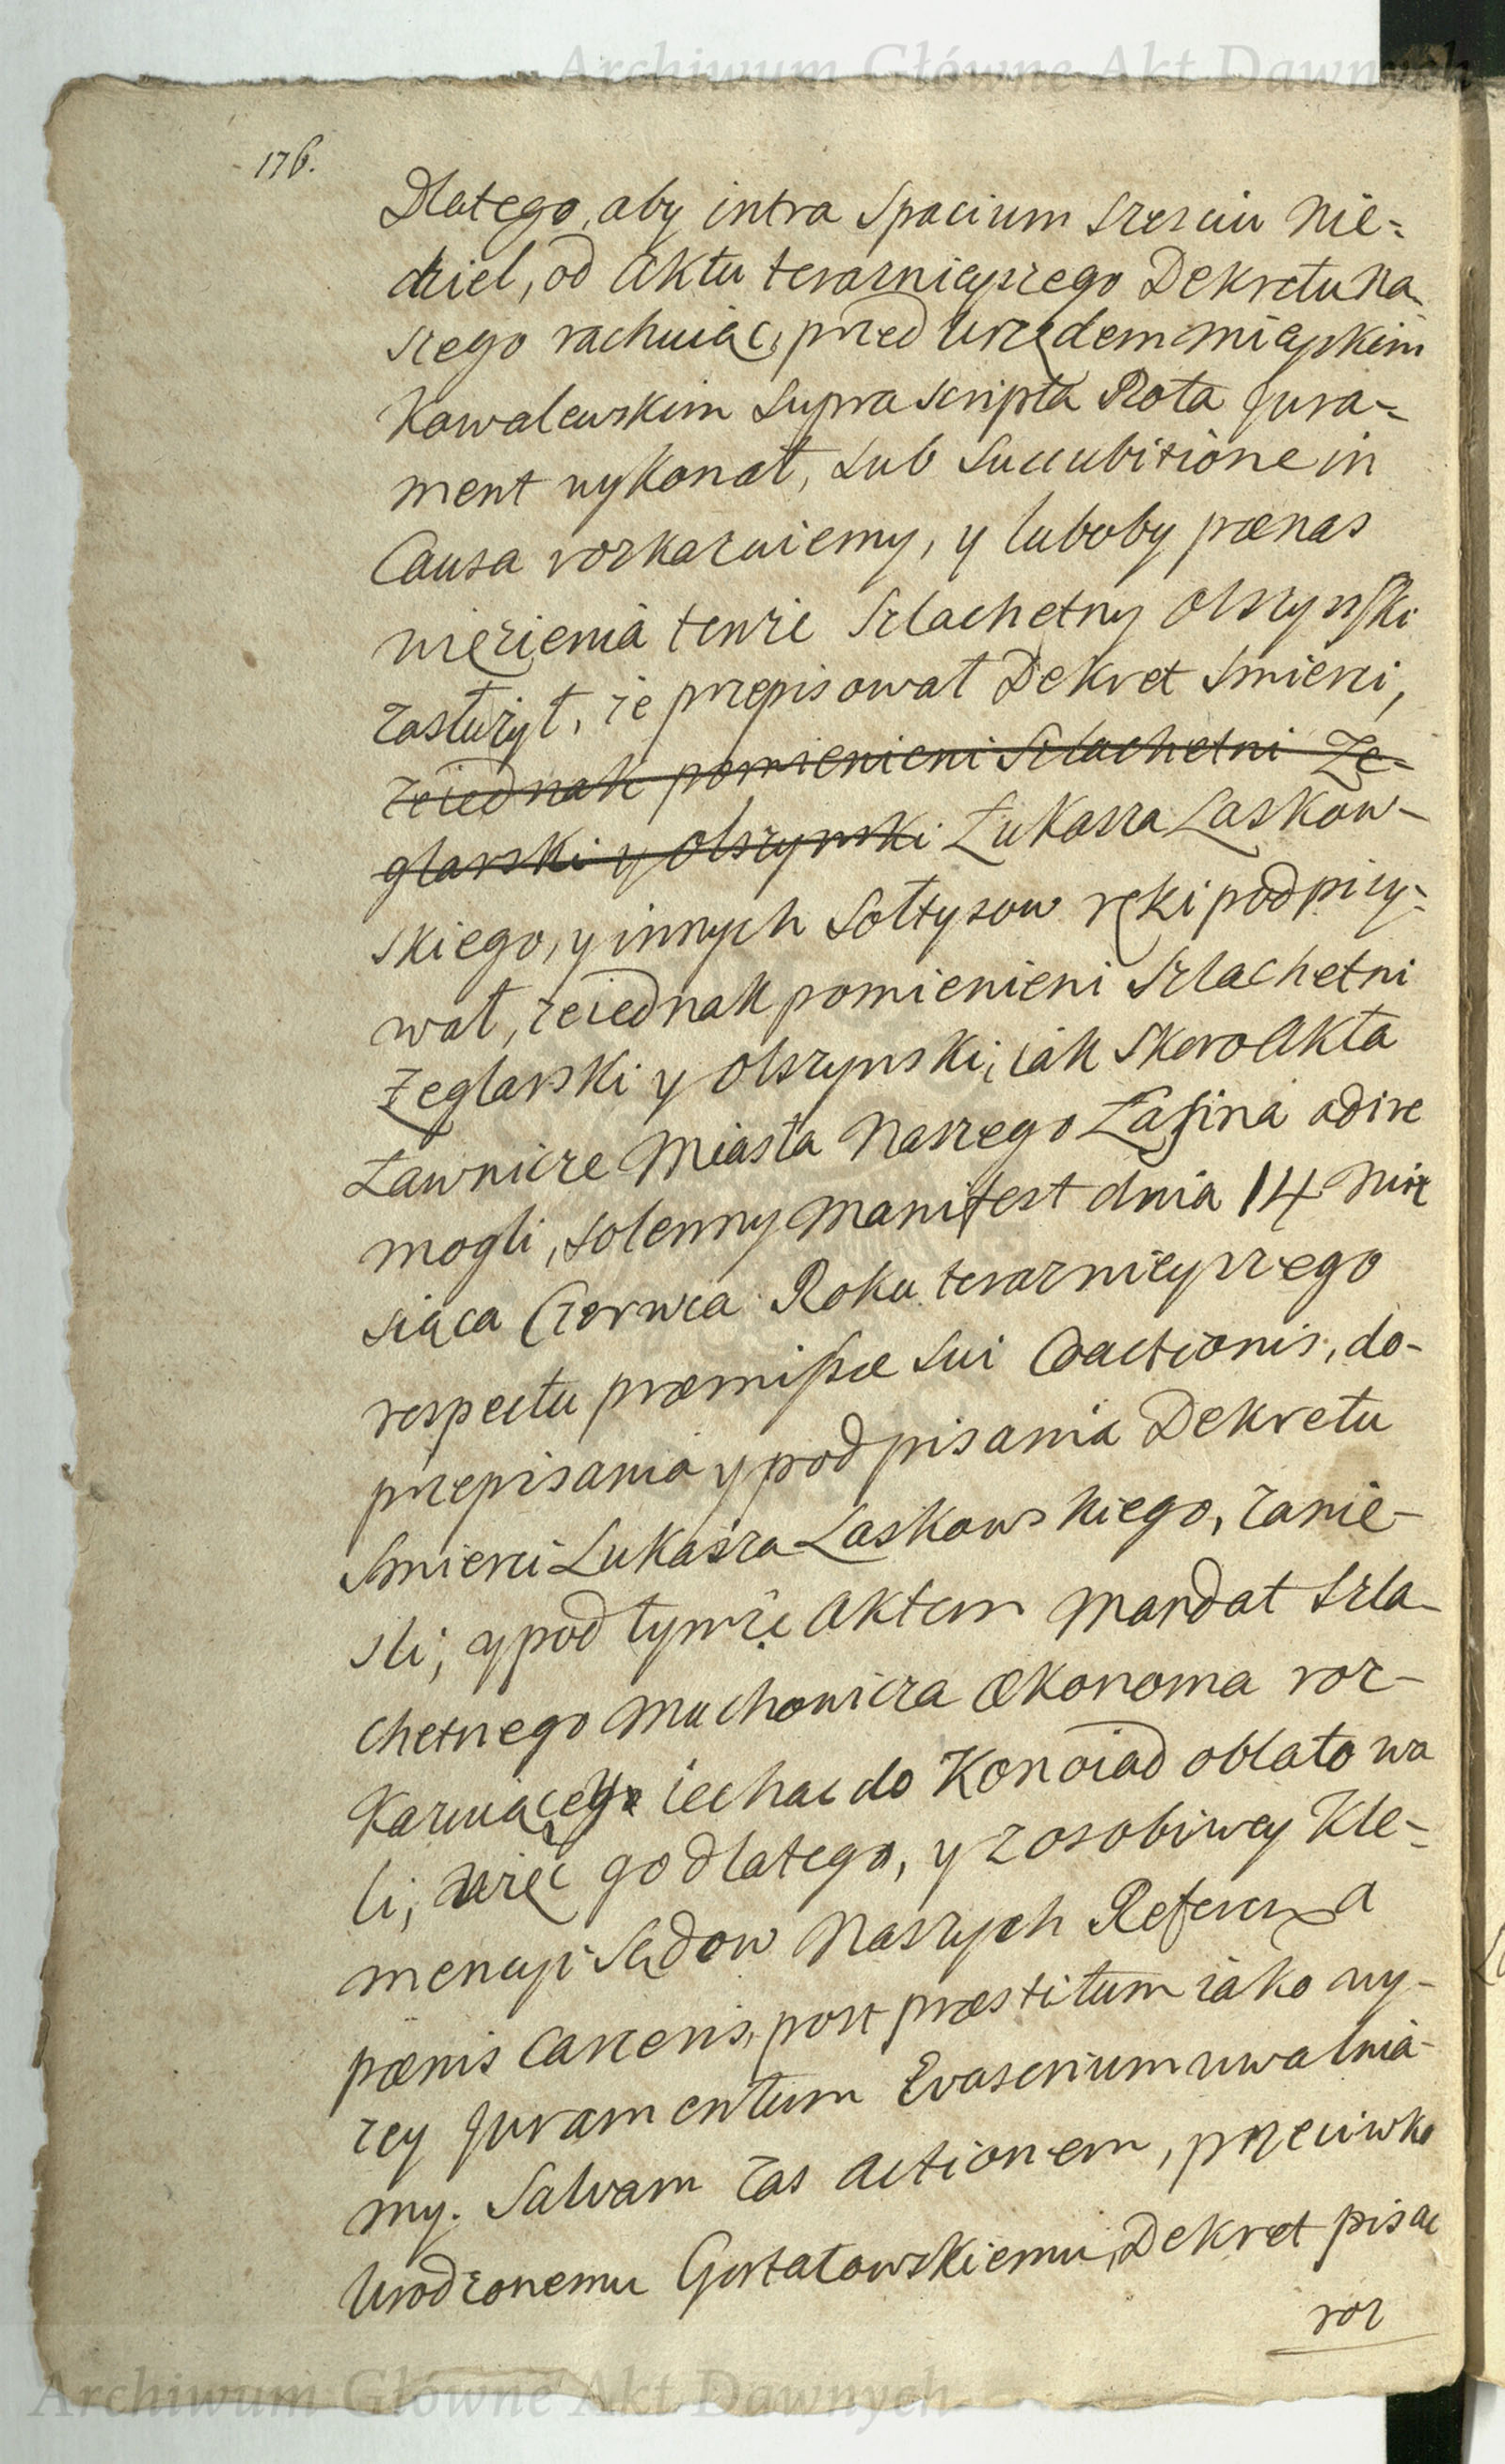 Archiwum Główne Akt Dawnych
176.
Dlatego, aby intra Spacium szesciu Nie-
dziel, od Aktu teraznieyszego Dekretu Na
szego rachuiąc, przed Urzędem Mieyskim
Kowalewskim Supra scripta Rota Jura-
ment wykonał, sub Succubitione in
Causa rozkazuiemy, y luboby pœnas
więzienia tenże Szlachetny Olszynski
zasłużył, że przepisował Dekret Smierci,
żeiednak pomienieni Szlachetni Że-
glarski y Olszynski Łukasza Laskow-
skiego, y innych Sołtysow ręki podpisy-
wał, żeiednak pomienieni Szlachetni
Żeglarski y Olszynski, iak skoro Akta
Ławnicze Miasta Naszego Łasina adire
mogli, solenny Manifest dnia 14 Mie
siąca Czerwca Roku teraznieyszego
respectu præmissæ sui Coactionis, do-
przepisania y podpisania Dekretu
Smierci Łukasza Laskowskiego, zanie-
sli, y pod tymże Aktem Mandat Szla-
chetnego Muchowicza Œkonoma roz-
kazuiącego iechac do Konoiad oblatowa
li, więc go dlatego, y z osobiwey Kle-
mencyi Sądow Naszych Referenda
pœnis Carceris, post præstitum iako wy-
zey Juramentum Evasorium uwalnia-
my. Salvam zas Actionem, przeciwko
Urodzonemu Gortatowskiemu, Dekret pisac
roz
Archiwum Główne Akt Dawnych